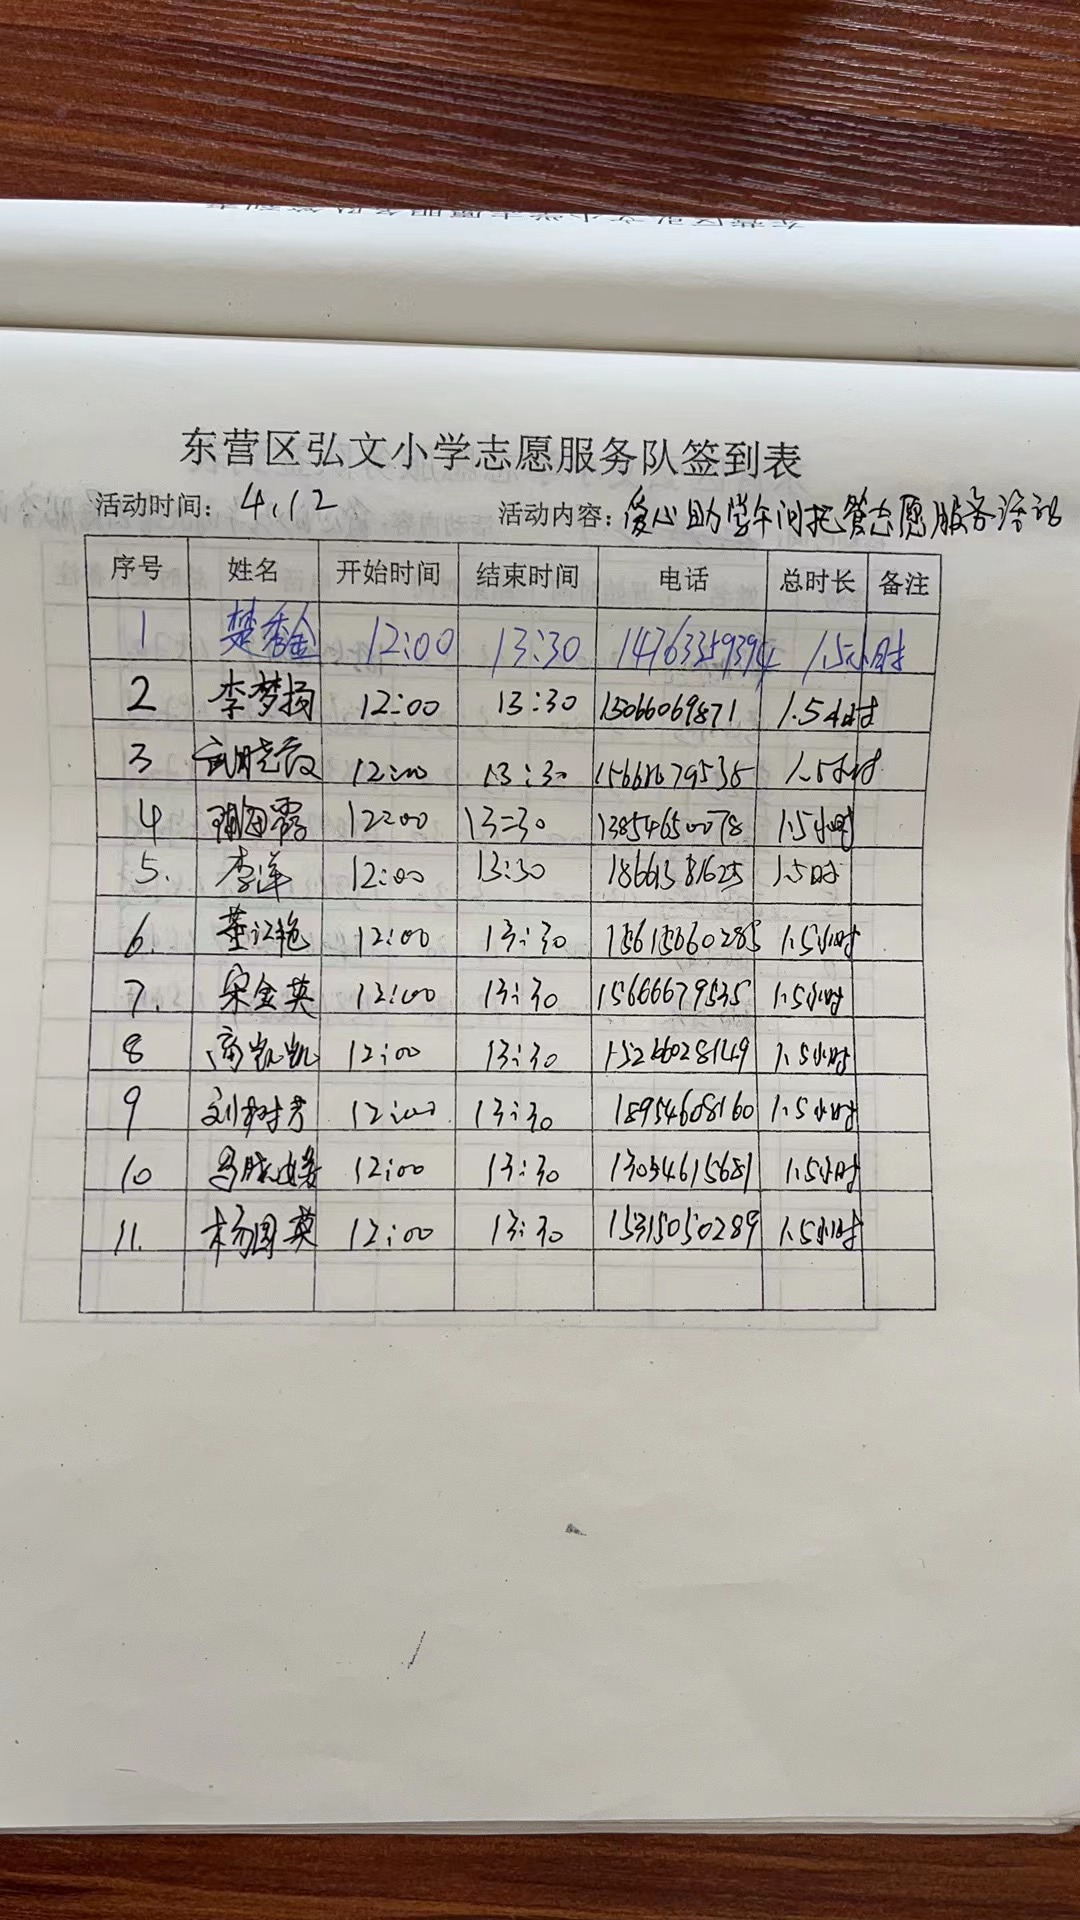 东营区弘文小学志愿服务队签到表
活动时间：4.12 活动内容：爱心助学午间托管志愿服务活动
序号 姓名 开始时间 结束时间 电话 总时长 备注
1 楚秀金 12:00 13:30 14763359394 1.5小时
2 李梦扬 12:00 13:30 15066069871 1.5小时
3 12:00 13:30 1.5小时
4 12:00 13:30 13854650078 1.5小时
5. 李莲 12:00 13:30 18661381625 1.5时
6. 董江艳 12:00 13:30 1.5小时
7. 宋金英 12:00 13:30 15666679535 1.5小时
8 高凯凯 12:00 13:30 15266028149 1.5小时
9 刘树芳 12:00 13:30 18954608160 1.5小时
10 12:00 13:30 13034615681 1.5小时
11. 杨国英 12:00 13:30 15315050289 1.5小时